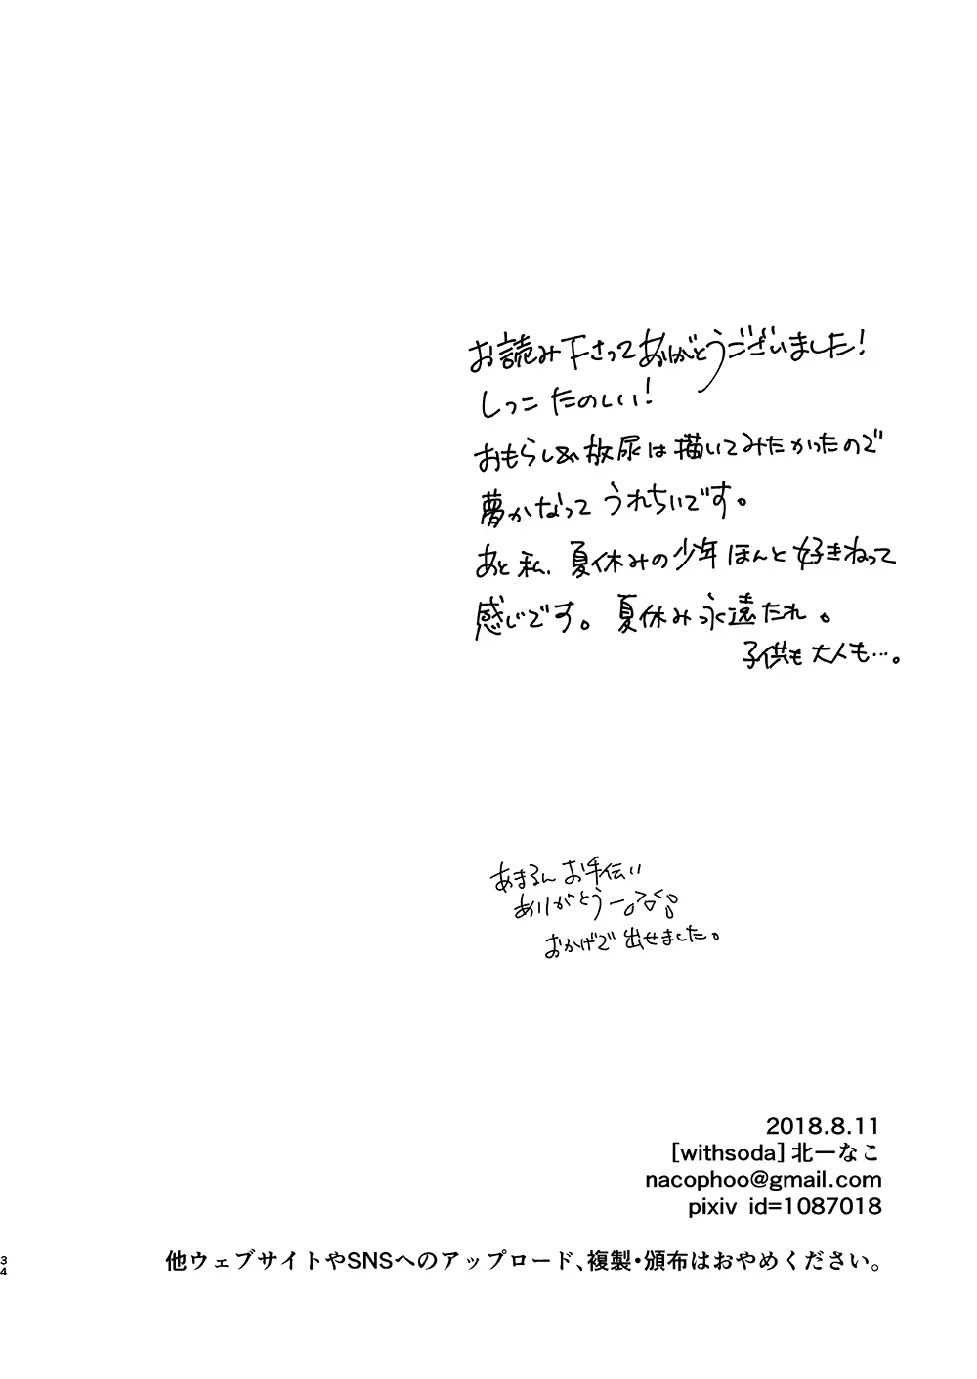 お読み下さってありがとうございました！
しっこ たのしい！
おもらし&放尿は描いてみたかったので
夢かなって うれちいです。
あと 私、夏休みの少年 ほんと 好きねって
感じです。夏休み永遠たれ。
子供も 大人も…。
あまるん お手伝い
ありがとうー
おかげで 出せました。
2018.8.11
[withsoda]北一なこ
nacophoo@gmail.com
pixiv id=1087018
他ウェブサイトやSNSへのアップロード、複製・頒布はおやめください。
34